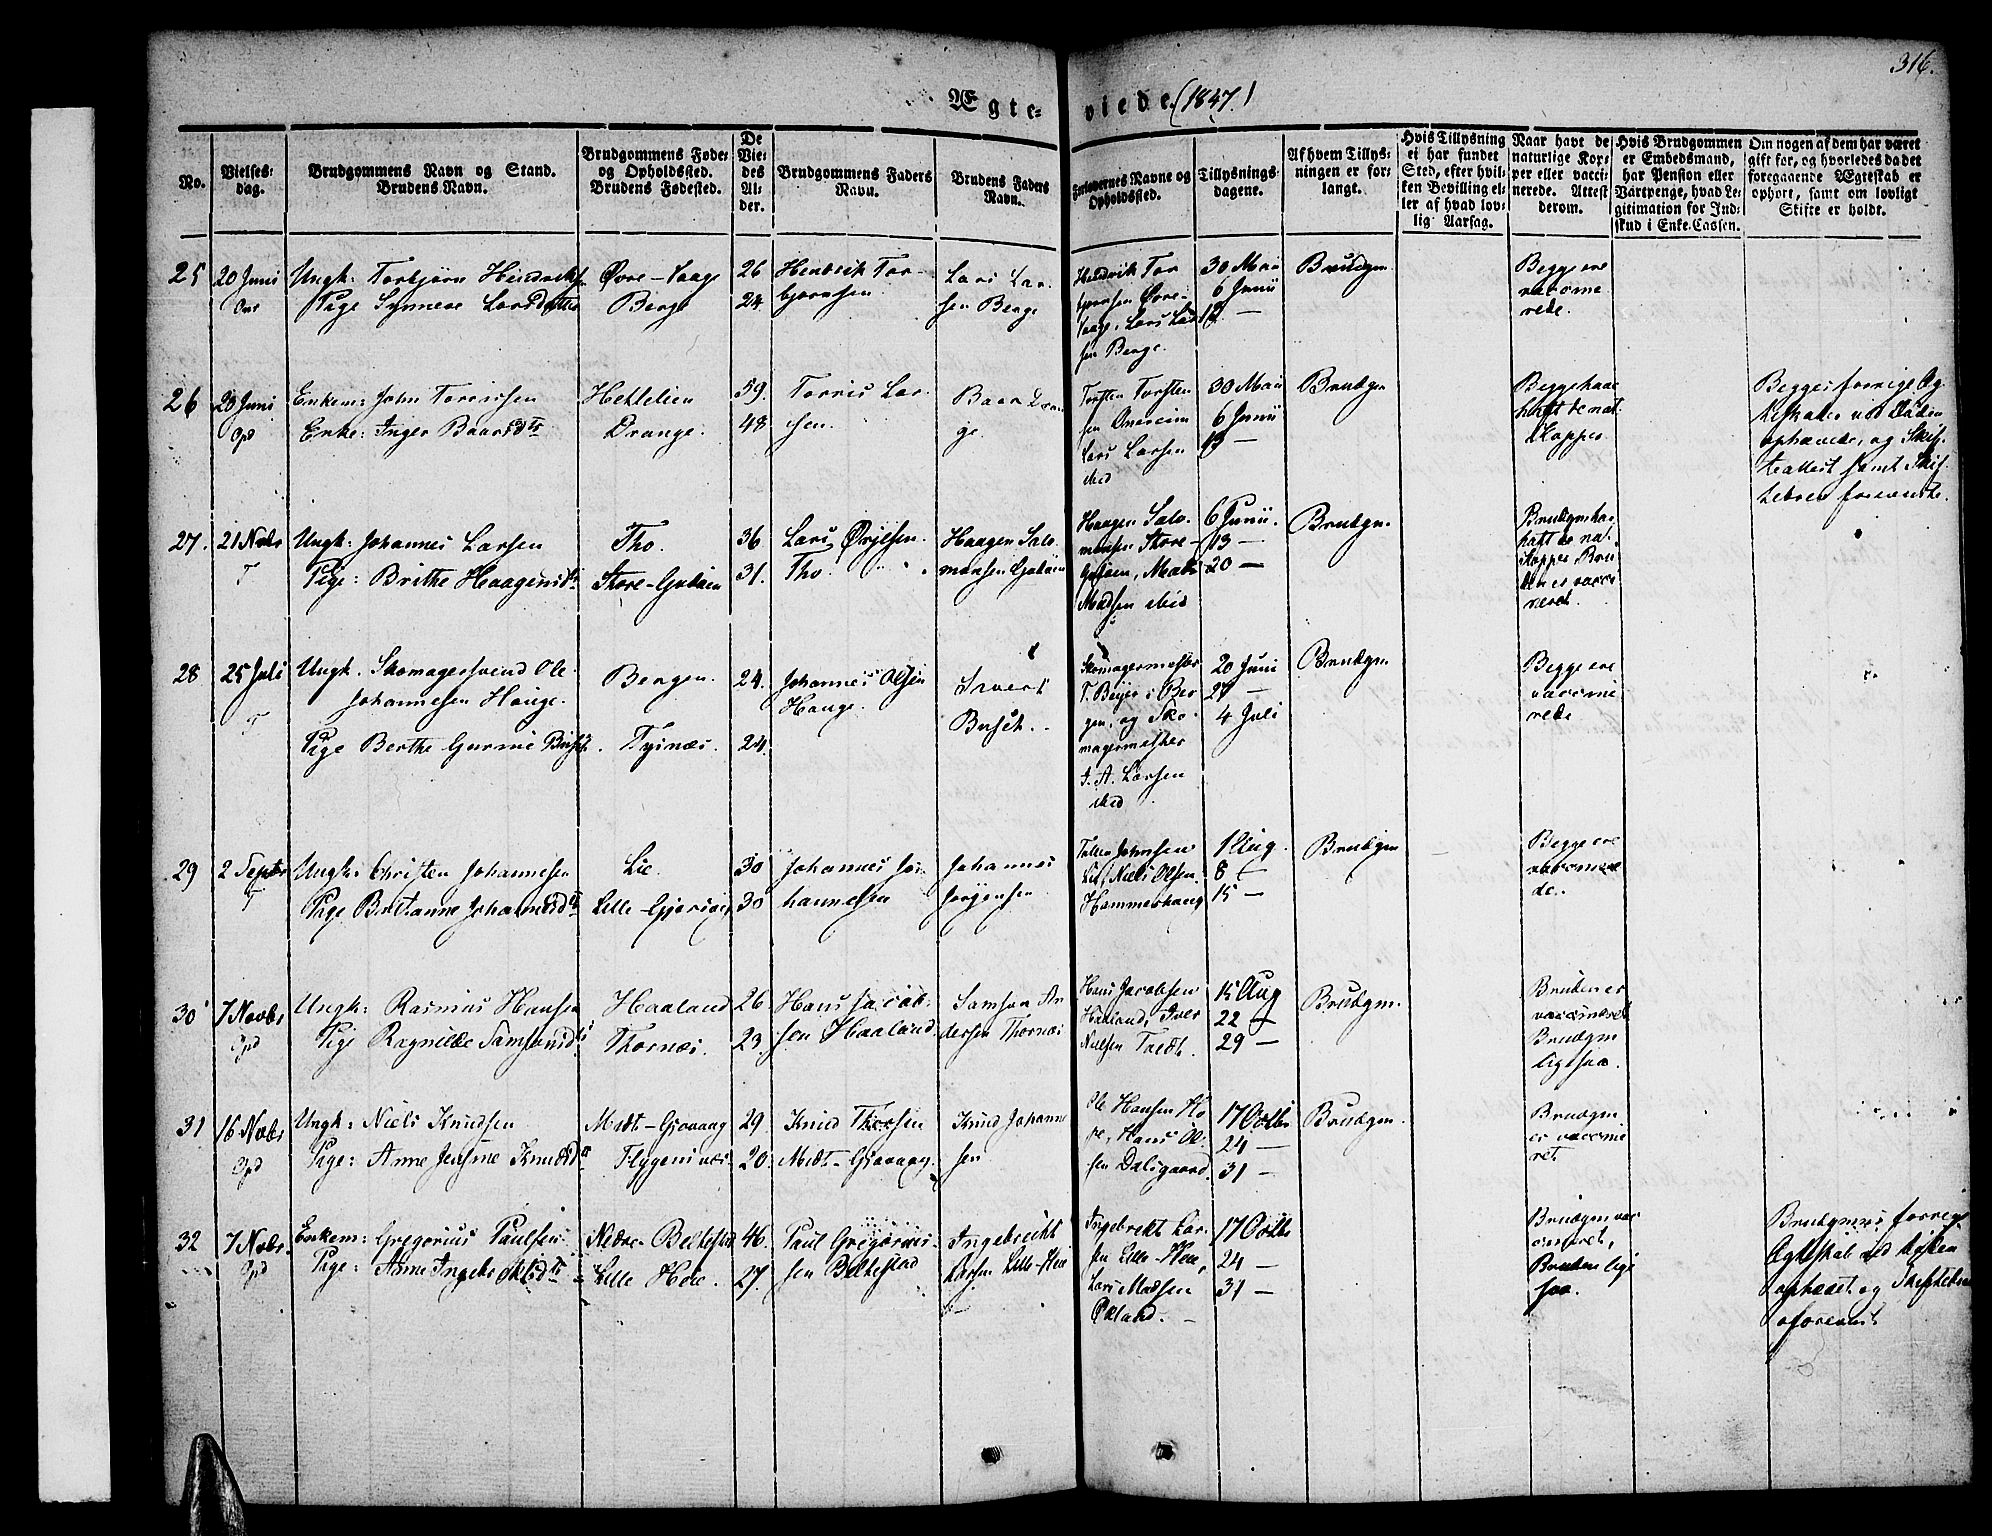 316.
Ægte- viede (1847.)
No.
Vielses-
dag.
Brudgommens Navn og Stand.
Brudens Navn.
Brudgommens Føde-
og Opholdssted.
Brudens Fødested.
De
Vie-
des
Al-
der.
Brudgommens Faders
Navn.
Brudens Faders
Navn.
Forlovernes Navne og
Opholdssted.
Tillysnings-
dagene.
Af hvem Tillys-
ningen er for-
langt.
Hvis Tillysning
ei har fundet
Sted, efter hvil-
ken Bevilling el-
ler af hvad lov-
lig Aarsag.
Naar havt de
naturlige Kop-
per eller vacci-
nerede. Attest
derom.
Hvis Brudgommen
er Embedsmand,
har Pension eller
Vartpenge, hvad Le-
gitimation for Ind-
skud i Enke-Cassen.
Om nogen af dem har været
gift før, og hvorledes da det
foregaaende Ægteskab er
ophørt, samt om lovligt
Skifte er holdt.
25
20 Juni
Ungk: Torbjørn Hendrichs.
Pige Synneve Larsdatter
Øvre-Vaage
Berge
26
24
Hendrik Tor-
bjørnsen
Lars Lar-
sen Berge
Hendrik Tor
bjørnsen Øvre-
Vaage, Lars Lar
sen Berge.
30 Mai
6 Junii
13 —
Brudgm
Begge ere
vaccine
rede.
26
20 Juni
Opd
Enkem: John Torrissen
Enke: Inger Baarsdtr
Hettelien
Drange.
59.
48
Torris Lar-
sen.
Baar Dran
ge.
Torsten Torsten
sen
Lars Larsen
ibid
30 Mai
6 Junii
13 —
Brudgm
Begge have
havt de nat.
Kopper
Begges forrige Æg
teskaber ved Døden
ophævede, og Skif-
teattest samt Skif-
tebrev foreviste.
27.
21 Novbr
T
Ungk: Johannes Larsen
Pige: Brithe Haagensdtr
Tho.
Store-Godøen
36
31.
Lars
Tho.
Haagen Salo
monsen Godøen
Haagen Salo-
monsen Store-
Godøen, Mads
Madsen ibid
6 Junii.
13 —
20 —
Brudgm.
Brudgm har
havt de nat.
Kopper Bru
den er vacci
neret.
28
25 Juli
T
Ungk. Skomagersvend Ole
Johannesen Hauge.
Pige Berthe Gurine Busch.
Bergen.
Tysnæs.
24.
24.
Johannes Olsen
Hauge.
Sivert
Busch.
Skomagermester
T. Beyer i Ber
gen, og Sko-
magermester
J. A. Larsen
ibid
20 Juni
27 —
4 Juli
Brudgm.
Begge ere
vaccine
rede
29
2 Septbr
T
Ungk: Christen Johannesen
Pige Johannesdtr
Lie.
Lille-Gjersvig
30
30
Johannes Jo-
hannesen
Johannes
Jørgensen
Johnsen
Lie, Niels Olsen
Hammerhaug
1 Aug.
8 —
15 —
Brudgm
Begge ere
vaccinere
de.
30
7 Novbr
Opd
Ungk: Rasmus Hansen
Pige Ragnilde Samsonsdtr
Haaland
Thornæs.
26.
23
Hans Jacob-
sen Haaland.
Samson An
dersen Thornæs
Hans Jacobsen
Haaland, Iver
Nielsen Tvedt.
15 Aug
22 —
29 —
Brudgm.
Bruden er
vaccineret
Brudgm
ligesaa.
31
16 Novbr
Opd
Ungk: Niels Knudsen
Pige: Anne Jensine Knudsdtr
Midt-Gjøvaag
Flygensvær
29.
20.
Knud Thorsen
Midt-Gjøvaag.
Knud Johanne
sen
Ole Hansen Ho
pe, Hans Ol-
sen Dalsgaard.
17 Octbr
24 —
31 —
Brudgm.
Brudgm
er vaccine
ret.
32
7 Novbr.
Opd
Enkem: Gregorius Paulsen
Pige: Anne
Nedre-Beltestad
Lille Hoie.
46.
27.
Paul Gregorius-
sen Beltestad
Ingebrecht
Larsen Lille-Hoie
Ingebrekt Lar-
sen Lille-Hoie,
Lars Madsen
Økland.
17 Octbr
24 —
31 —
Brudgm vac
cineret,
Bruden lige
saa.
Brudgmens forrige
Ægteskab ved Døden
ophævet og Skiftebrev
forevist